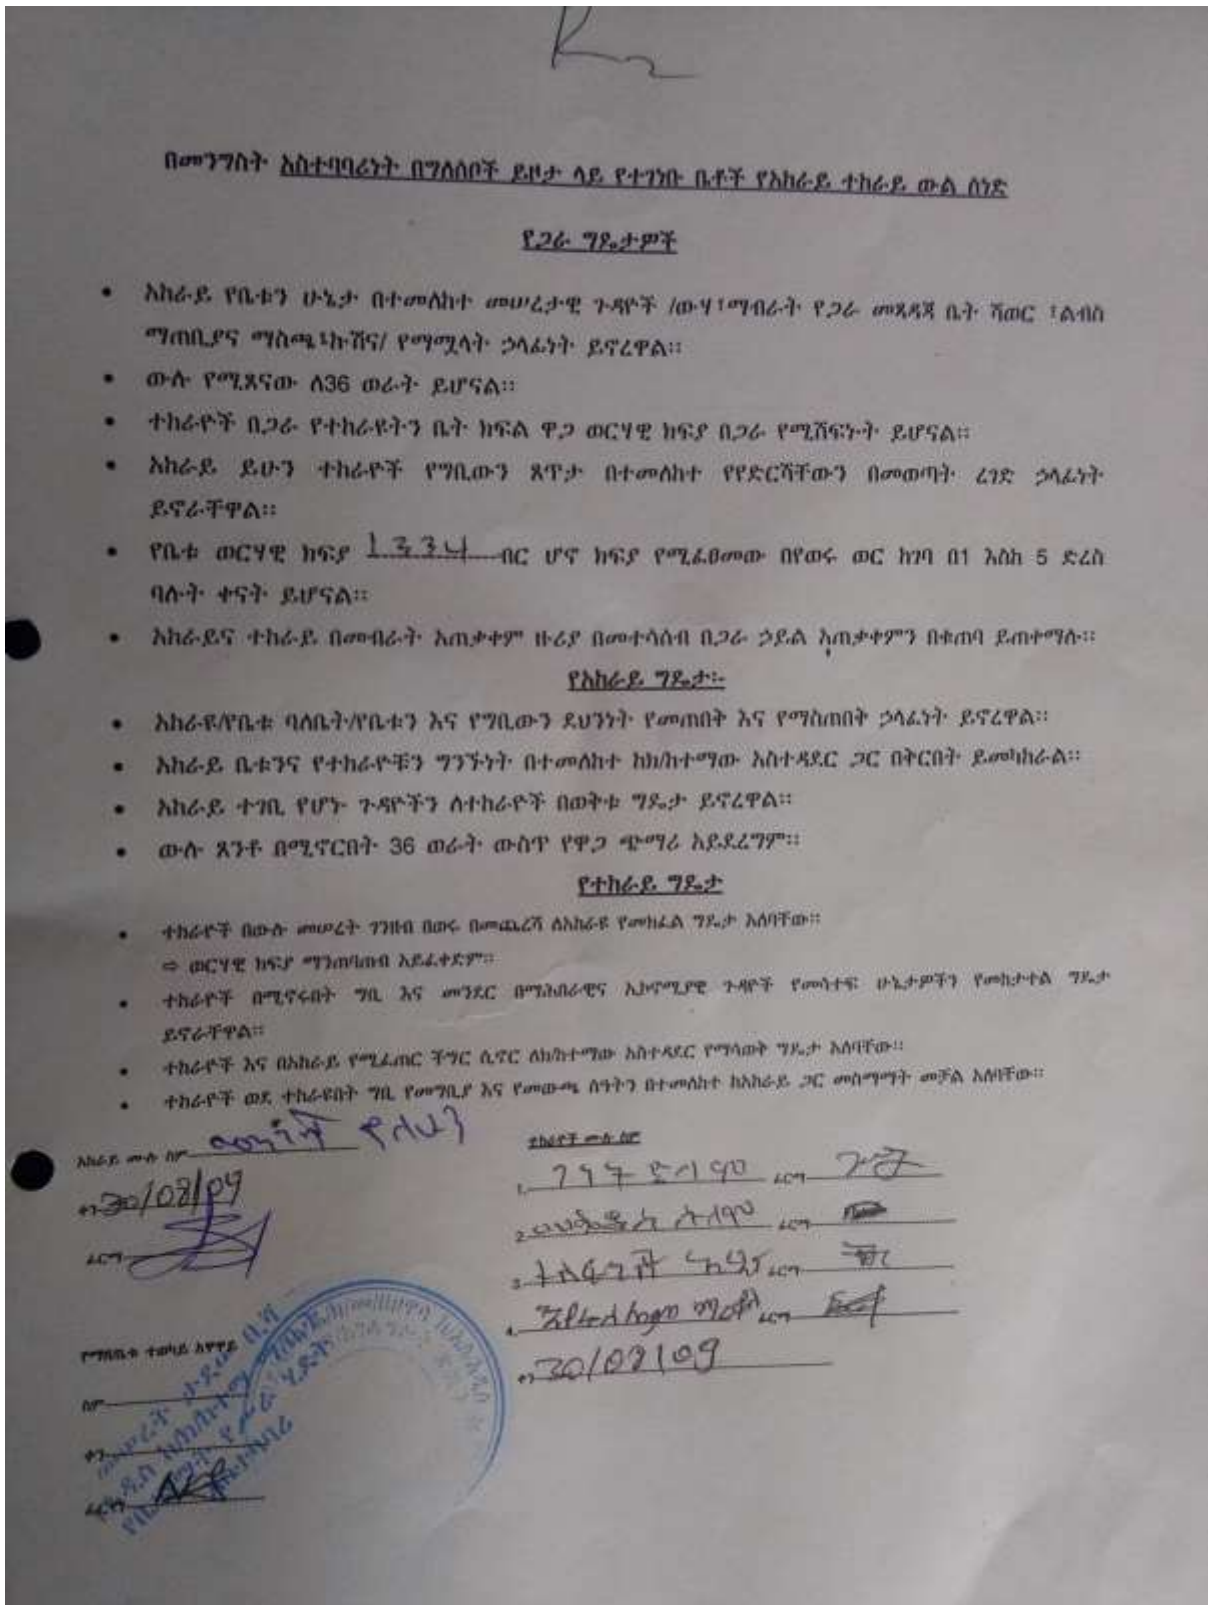 በመንግስት አስተባባሪነት በግለሰቦች ይዞታ ላይ የተገነቡ ቤቶች የአከራይ ተከራይ ውል ሰነድ
የጋራ ግዴታዎች
• አከራይ የቤቱን ሁኔታ በተመለከተ መሠረታዊ ጉዳዮች /ውሃ፣ማብራት የጋራ መጸዳጃ ቤት ሻወር ፣ልብስ
ማጠቢያና ማስጫ፣ኩሽና/ የማሟላት ኃላፊነት ይኖረዋል፡፡
• ውሉ የሚጸናው ለ36 ወራት ይሆናል፡፡
• ተከራዮች በጋራ የተከራዩትን ቤት ክፍል ዋጋ ወርሃዊ ክፍያ በጋራ የሚሸፍኑት ይሆናል፡፡
• አከራይ ይሁን ተከራዮች የግቢውን ጸጥታ በተመለከተ የየድርሻቸውን በመወጣት ረገድ ኃላፊነት
ይኖራቸዋል፡፡
• የቤቱ ወርሃዊ ክፍያ 1334 ብር ሆኖ ክፍያ የሚፈፀመው በየወሩ ወር ከገባ በ1 እስከ 5 ድረስ
ባሉት ቀናት ይሆናል፡፡
• አከራይና ተከራይ በመብራት አጠቃቀም ዙሪያ በመተሳሰብ በጋራ ኃይል አጠቃቀምን በቁጠባ ይጠቀማሉ፡፡
የአከራይ ግዴታ፡-
• አከራዩ/የቤቱ ባለቤት/የቤቱን እና የግቢውን ደህንነት የመጠበቅ እና የማስጠበቅ ኃላፊነት ይኖረዋል፡፡
• አከራይ ቤቱንና የተከራዮቹን ግንኙነት በተመለከተ ከክ/ከተማው አስተዳደር ጋር በቅርበት ይመካከራል፡፡
• አከራይ ተገቢ የሆኑ ጉዳዮችን ለተከራዮች በወቅቱ ግዴታ ይኖረዋል፡፡
• ውሉ ጸንቶ በሚኖርበት 36 ወራት ውስጥ የዋጋ ጭማሪ አይደረግም፡፡
የተከራይ ግዴታ
• ተከራዮች በውሉ መሠረት ገንዘብ በወሩ በመጨረሻ ለአከራዩ የመክፈል ግዴታ አለባቸው፡፡
⇨ ወርሃዊ ክፍያ ማንጠባጠብ አይፈቀድም፡፡
• ተከራዮች በሚኖሩበት ግቢ እና መንደር በማሕበራዊና ኢኮኖሚያዊ ጉዳዮች የመሳተፍ ሁኔታዎችን የመከታተል ግዴታ
ይኖራቸዋል፡፡
• ተከራዮች እና በአከራይ የሚፈጠር ችግር ሲኖር ለክ/ከተማው አስተዳደር የማሳወቅ ግዴታ አለባቸው፡፡
• ተከራዮች ወደ ተከራዩበት ግቢ የመግቢያ እና የመውጫ ሰዓትን በተመለከተ ከአከራይ ጋር መስማማት መቻል አለባቸው፡፡
አከራይ ሙሉ ስም
ቀን 30/08/09
ፊርማ
ተከራዮች ሙሉ ስም
1. ገነት ፊርማ
2. ፊርማ
3. ፊርማ
4. ፊርማ
ቀን 30/08/09
የማህበሩ ተወካይ አዋዋይ
ስም
ቀን
ፊርማ